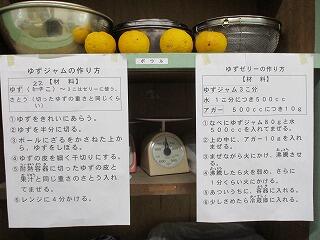 ボウル
ゆずジャムの作り方
【材 料】
ゆず
さとう（切ったゆずの重さと同じくらい）
①ゆずをきれいにあらう。
②ゆずを半分に切る。
③ボールにざるをかさねた上から、ゆずをしぼる。
④ゆずの皮を細く千切りにする。
⑤耐熱容器に切ったゆずの皮と果汁と同じ重さのさとう入れてまぜる。
⑤レンジに4分かける。
ゆずゼリーの作り方
【材 料】
ゆずジャム3こ分
水 1こ分につき500cc
アガー 500ccにつき10g
①なべにゆずジャム80gと水
500ccを入れてまぜる。
②上の中に、アガー10gを入れ
まぜる。
③まぜながら火にかけ、沸騰させ
る。
④沸騰したら火を弱め、さらに
1分くらい火にかける。
⑤あついうちに、容器に入れる。
⑥少しさめたら冷蔵庫に入れる。